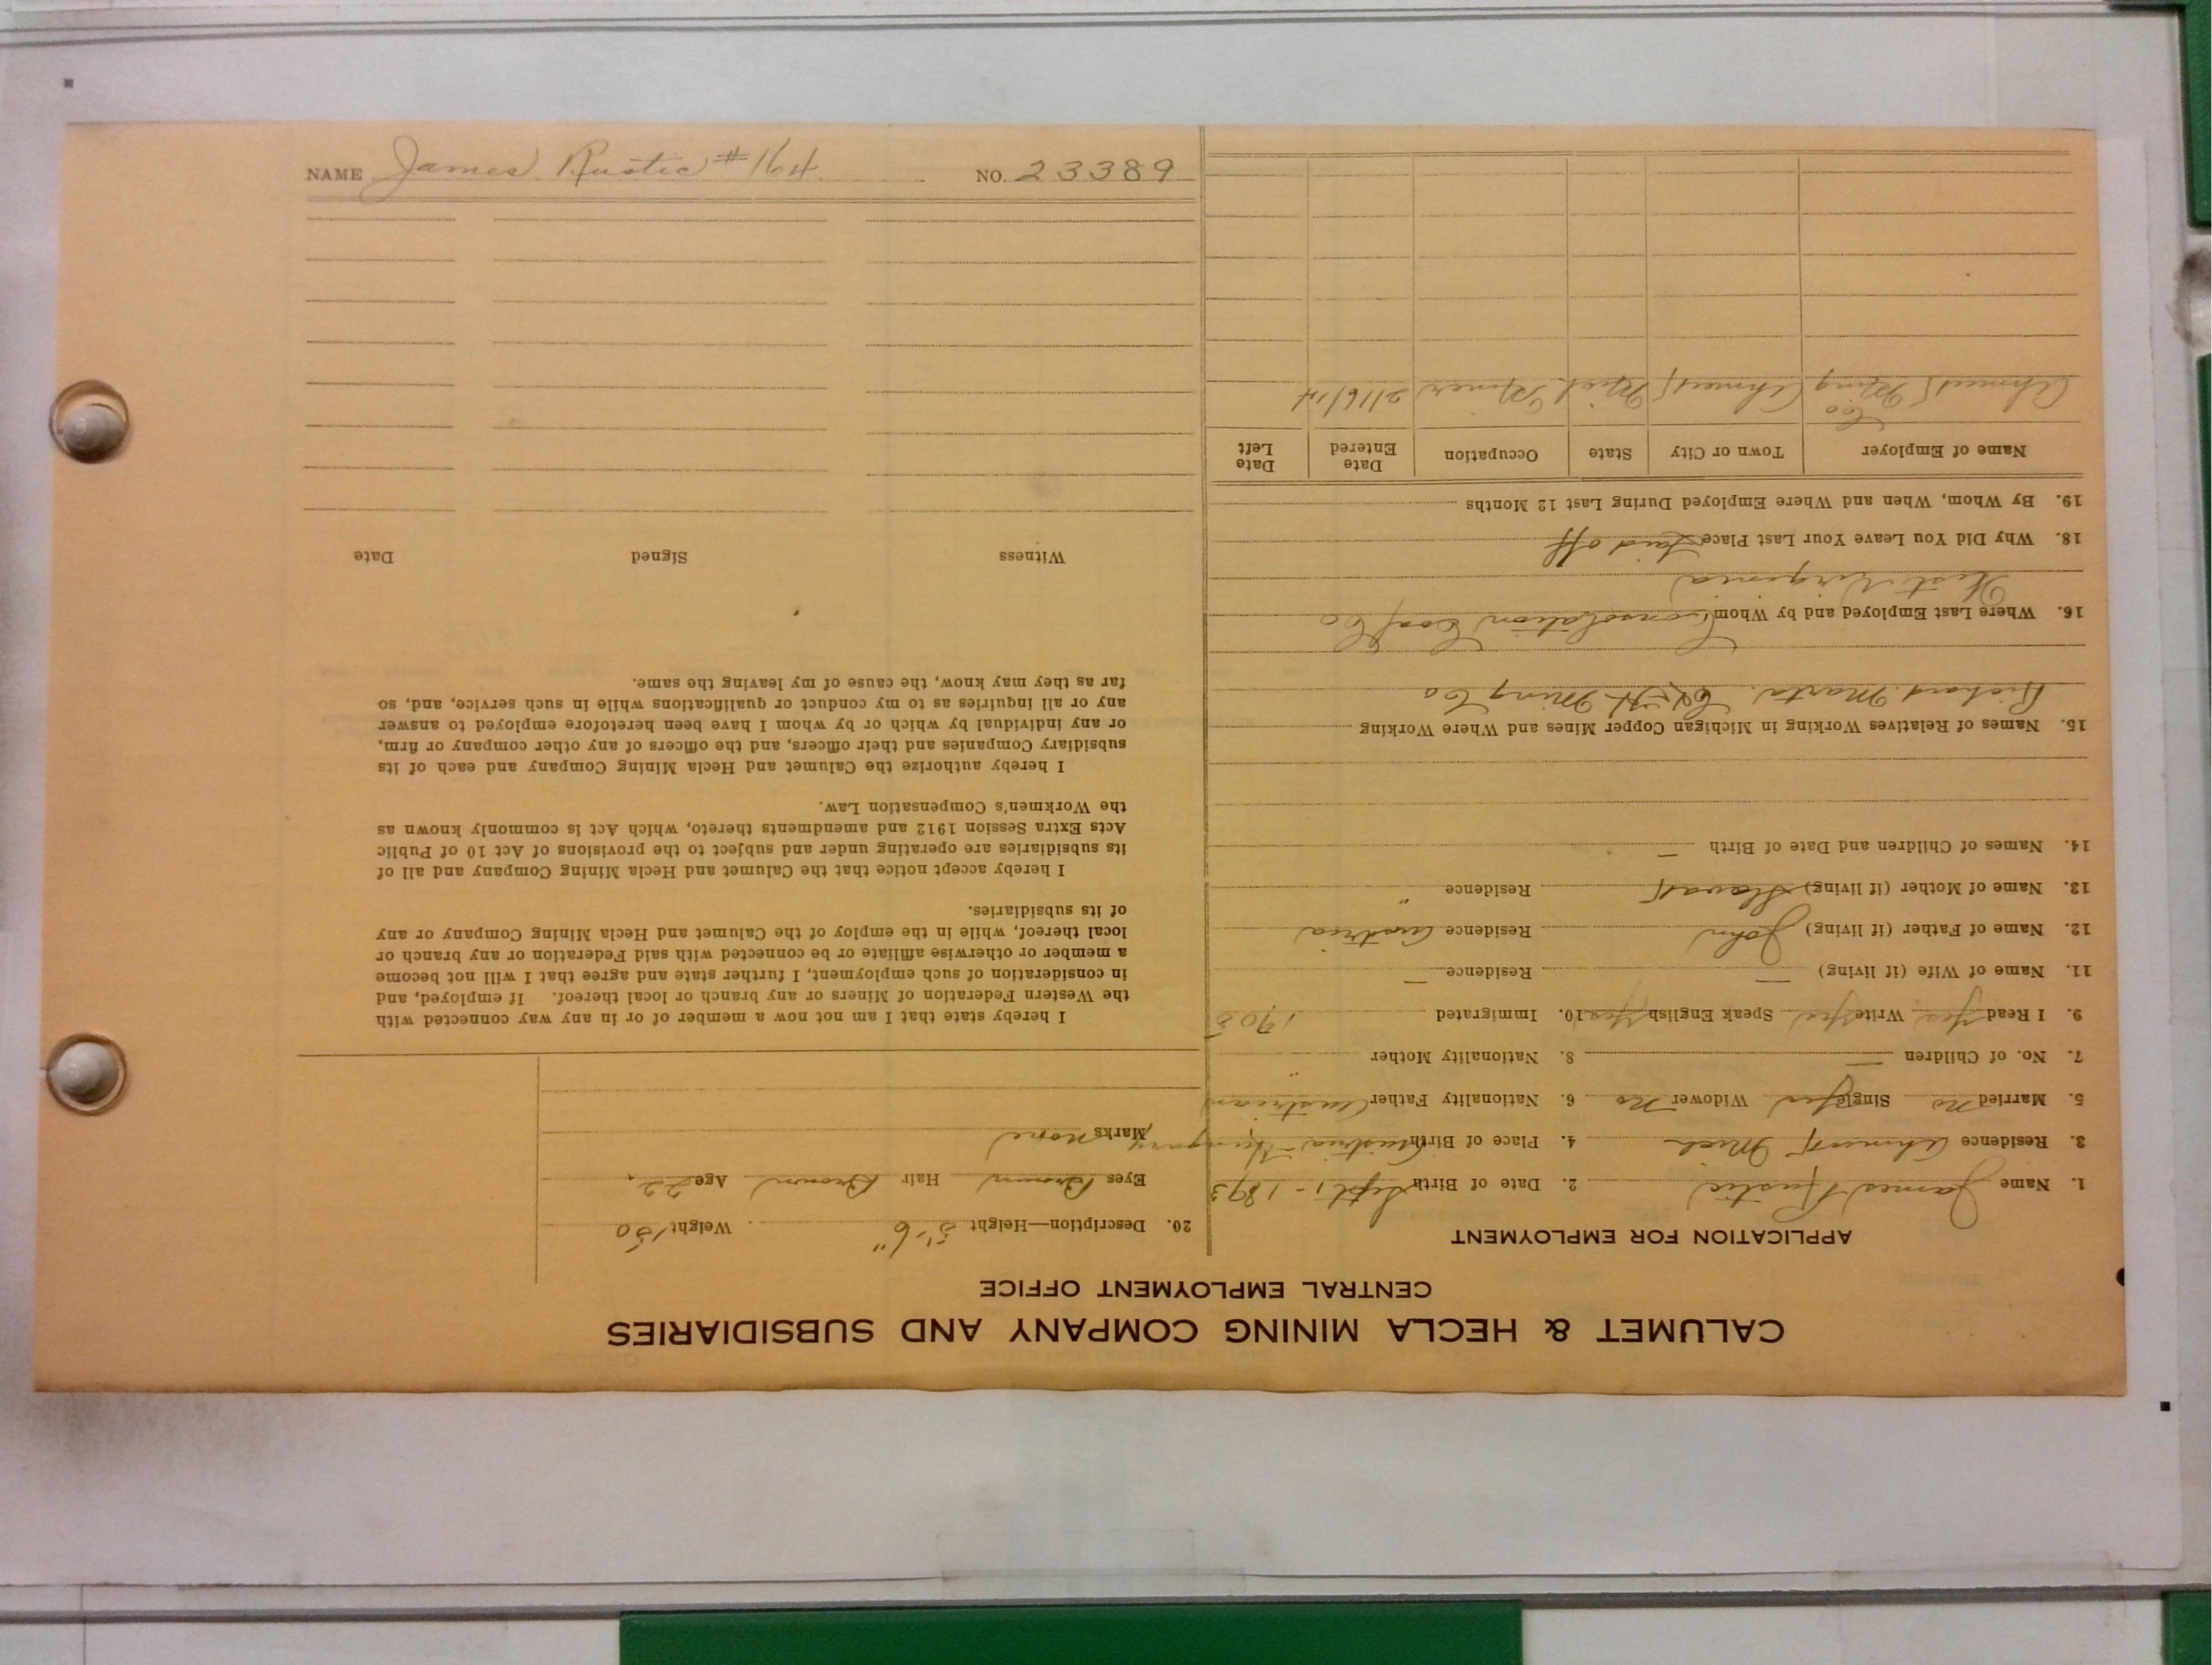 CALUMET & HECLA MINING COMPANY AND SUBSIDIARIES
CENTRAL EMPLOYMENT OFFICE
APPLICATION FOR EMPLOYMENT
1. Name James Rustic 2. Date of Birth Sept 1 - 1893
3. Residence Ahmeek Mich 4. Place of Birth Austria-Hungary
5. Married no Single yes Widower no 6. Nationality Father Austrian
7. No. of Children — 8. Nationality Mother "
9. I Read yes Write yes Speak English yes 10. Immigrated 1908
11. Name of Wife (if living) — Residence —
12. Name of Father (if living) John Residence Austria
13. Name of Mother (if living) Residence "
14. Names of Children and Date of Birth —
15. Names of Relatives Working in Michigan Copper Mines and Where Working
Richard Marta. C & H Ming Co
16. Where Last Employed and by Whom Consolation Coal Co
West Virginia
18. Why Did You Leave Your Last Place Laid off
19. By Whom, When and Where Employed During Last 12 Months
Name of Employer Town or City State Occupation Date Entered Date Left
Ahmeek Ming Co Ahmeek Mich Miner 2/16/14
20. Description—Height 5'-6" Weight 150
Eyes Brown Hair Brown Age 22
Marks none
I hereby state that I am not now a member of or in any way connected with
the Western Federation of Miners or any branch or local thereof. If employed, and
in consideration of such employment, I further state and agree that I will not become
a member or otherwise affiliate or be connected with said Federation or any branch or
local thereof, while in the employ of the Calumet and Hecla Mining Company or any
of its subsidiaries.
I hereby accept notice that the Calumet and Hecla Mining Company and all of
its subsidiaries are operating under and subject to the provisions of Act 10 of Public
Acts Extra Session 1912 and amendments thereto, which Act is commonly known as
the Workmen's Compensation Law.
I hereby authorize the Calumet and Hecla Mining Company and each of its
subsidiary Companies and their officers, and the officers of any other company or firm,
or any individual by which or by whom I have been heretofore employed to answer
any or all inquiries as to my conduct or qualifications while in such service, and, so
far as they may know, the cause of my leaving the same.
Witness Signed Date
NAME James Rustic #164 NO. 23389